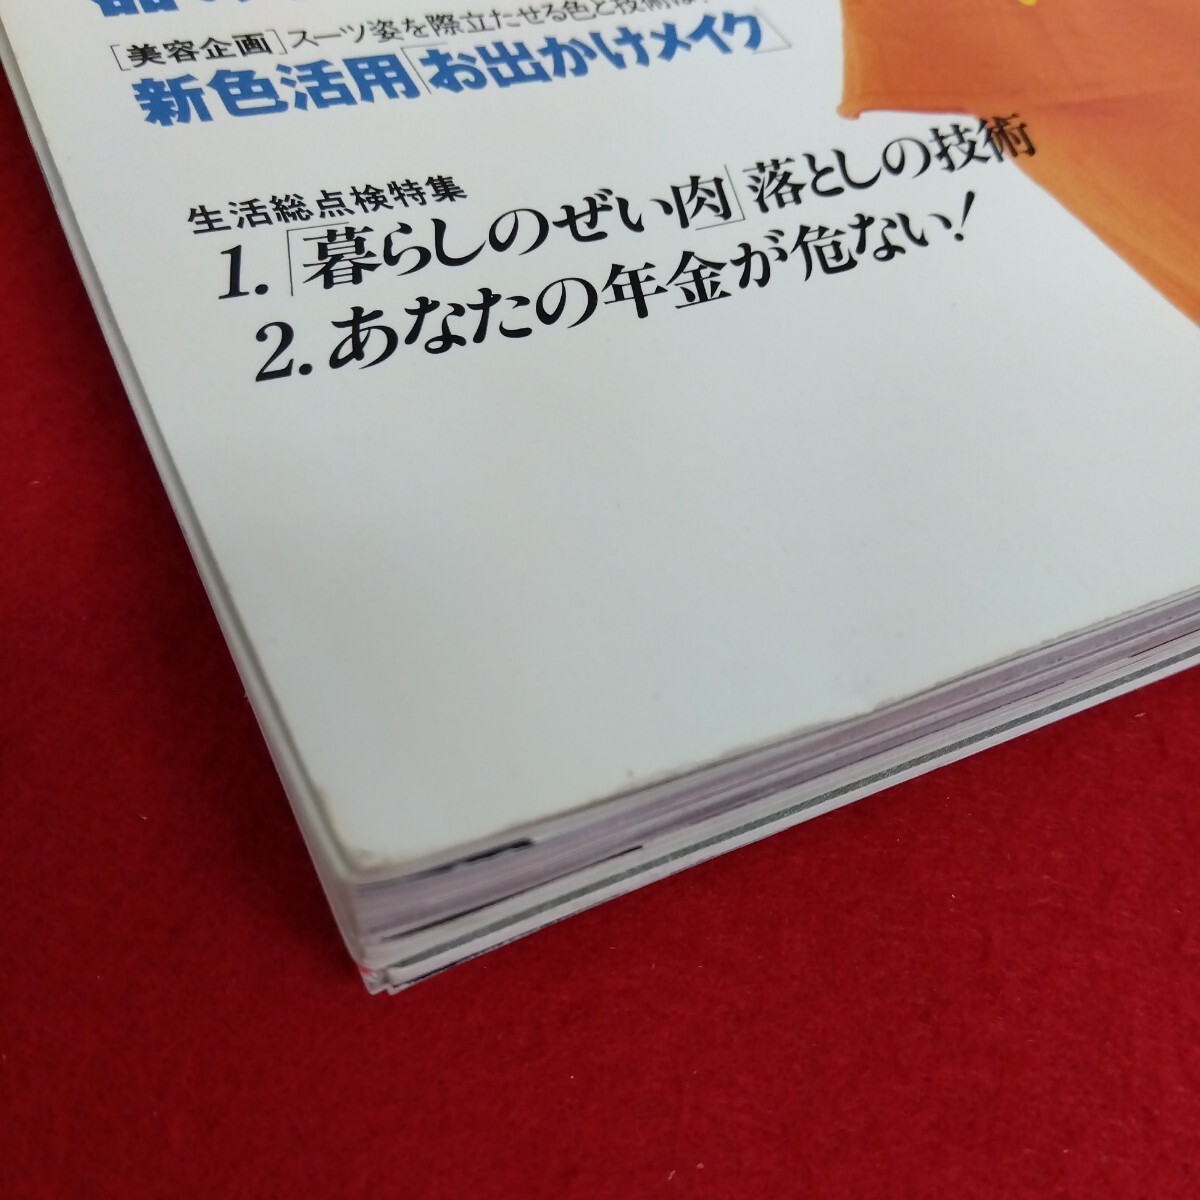 [美容企画]スーツ姿を際立たせる色と技術は
新色活用「お出かけメイク」
生活総点検特集
1.「暮らしのぜい肉」落としの技術
2.あなたの年金が危ない!